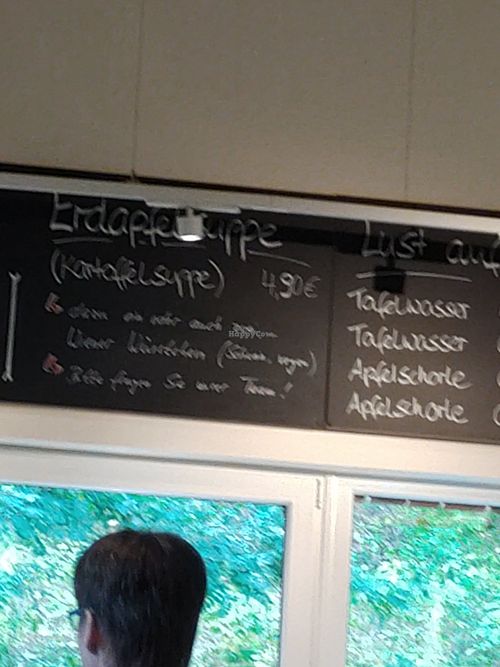 Erdapfelsuppe
(Kartoffelsuppe) 4,90€
Wiener Würstchen (Schwein, vegan)
Bitte fragen Sie unser Team!
Lust auf
Tafelwasser
Tafelwasser
Apfelschorle
Apfelschorle
HappyCow